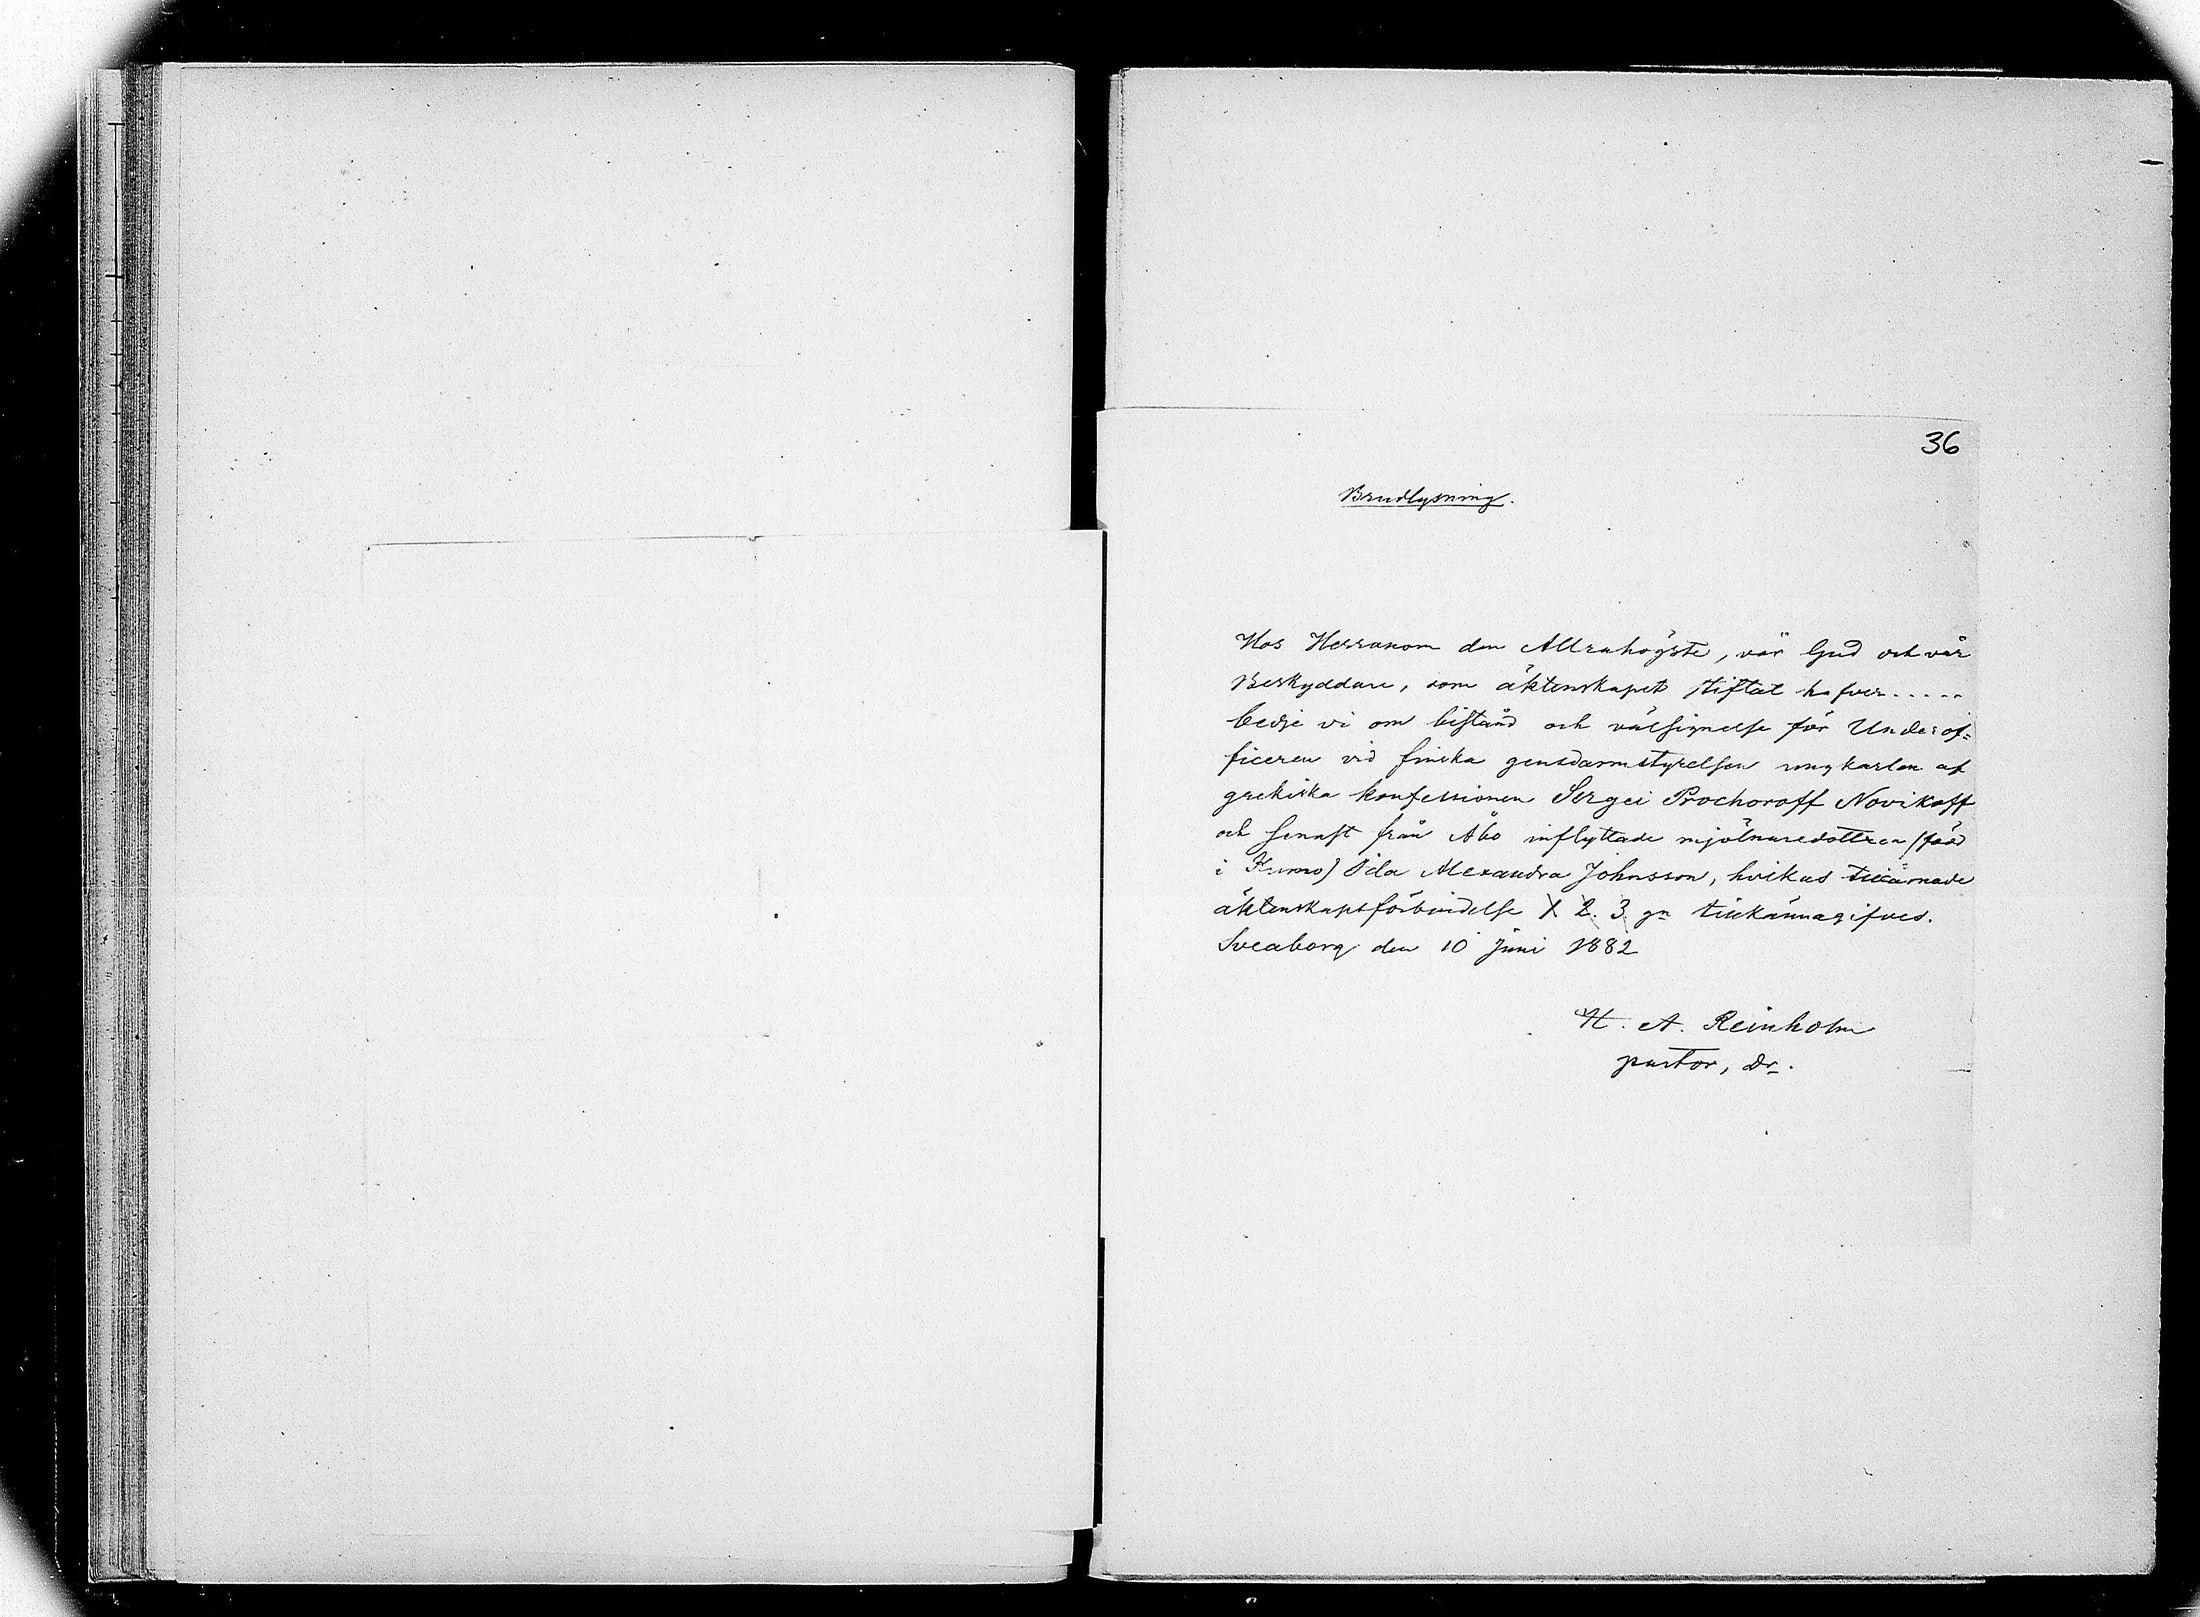 36
Brudlysning.
Hos Herranom den Allrahögste, vår Gud och vår
Beskyddare, som äktenskapet stiftat hafver.....
bedje vi om bistånd och välsignelse för Underof=
ficeren vid finska gensdarmstyrelsen ungkarlen af
grekiska konfessionen Sergei Prochoroff Novikoff
och senast från Åbo inflyttade mjölnaredottren (född
i Kumo) Ida Alexandra Johnsson, hvilkas tillärnade
äktenskapsförbindelse 1 2. 3 gn tillkännagifves.
Sveaborg den 10 Juni 1882
H. A. Reinholm
pastor, Dr.